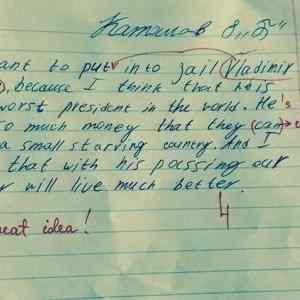 Каташов 8 „Б“
ant to put into jail Vladimir
, because I think that he is
worst president in the world. He's
so much money that they can
a small starving country. And I
that with his passing our
r will live much better.
4
eat idea!